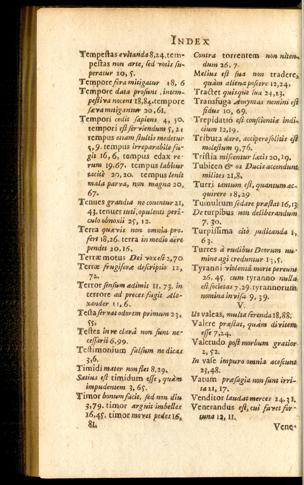 INDEX
Tempestas evitanda 8,24. tem-
pestas non arte, sed votis su-
peratur 10, 5.
Tempore fira mitigatur 18, 6
Tempore data prosunt, intem-
pestiva nocent 18,84. tempore
sæva mitigantur 20,61.
Tempori cedit sapiens 4, 30.
tempori est serviendum 5, 21
tempus etiam stultis medetur
5,9. tempus irreparabile fu-
git 16,6, tempus edax re-
rum 19.67. tempus labitur
tacitè 20,20. tempus lenit
mala parva, non magna 20,
67.
Tenues grandia ne conentur 21,
43. tenues tuti, opulenti peri-
culo obnoxii 25, 12.
Terra quævis non omnia pro-
fert 18,26. terra in medio aëre
pendet 20,16.
Terræ motus Dei vox est 2,70.
Terræ frugiferæ descriptio 12,
72.
Terror sensum adimit 11, 73. in
terrore ad preces fugit Ale-
xander 11, 6.
Testa servat odorem primum 23,
55.
Testes in re clarâ non sunt ne-
cessarii 6,99.
Testimonium falsum ne dicas
3,6.
Timidi mater non flet 8,29.
Satius est timidum esse, quàm
impudentem 3, 65.
Timor bonum facit, sed non diu
3,79. timor arguit imbelles
16,45. timor movet pedes 16,
81.
Contra torrentem non niten-
dum 26, 7.
Melius est sua non tradere,
quàm aliena poscere 12,24.
Tractet quisque sua 24,23.
Transfuga Amyntas nemini est
fidus 10, 69.
Trepidatio est conscientiæ indi-
cium 12,19.
Tributa dare, accipere solitis est
molestum 9,76.
Tristia miscentur lætis 20,19.
Tubicen & os Ducis accendunt
milites 21,8.
Tueri tantum est, quantum ac-
quirere 18,29
Tumultum sedare præstat 16,13
De turpibus non deliberandum
7, 30.
Turpissima citò judicanda 1,
63.
Turres à rudibus Deorum nu-
mine agi creduntur 13, 5.
Tyranni violentâ morte pereunt
26, 45. cum tyranno nulla
est societas 7.29. tyrannorum
nomina invisa 9, 39.
V.
Ut valeas, multa ferenda 18,88.
Valere præstat, quàm divitem
esse 7,24.
Valetudo post morbum gratior
2, 52.
In vase impuro omnia acescunt
23,48.
Vatum præsagia non sunt irri-
ta 21, 17.
Venditor laudat merces 24.31.
Venerandus est, cui favet for-
tuna 12, 11.
Vene-